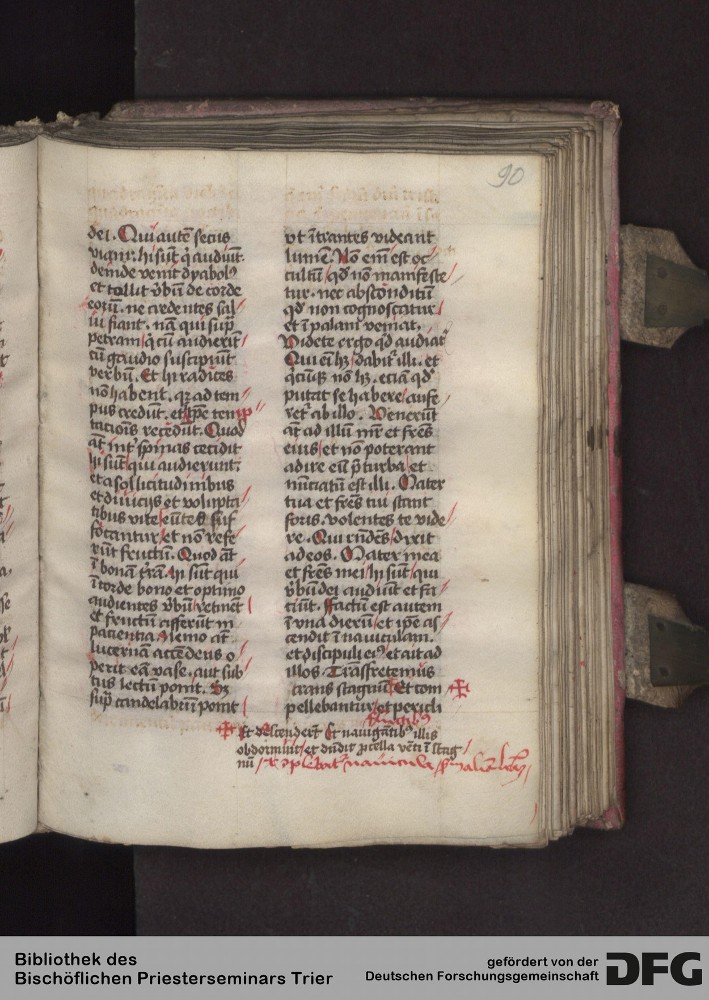 90
dei. Qui autē secus
viam. hi sūt q̇ audiūt.
deinde venit dyabol9
et tollit v̄bū de corde
eorū. ne credentes sal
ui fiant. nā qui sup̄
petram q̇ cū audierīt
cū gaudio suscipiūt
verbū. Et hi radices
nō habent. qz ad tem
pus credūt. et tp̄e temp
tacionis recedūt. Quod
āt int̉ spinas cecidit
hi sūt qui audierunt.
et a sollicitudinibus
et diuicijs et volupta
tibus vite eūtes suf
focantur et nō refe
rūt fructū. Quod āt
ī bonā t̉rā. hi sūt qui
ī corde bono et optimo
audientes v̄bū retinēt
et fructū afferūt in
paciencia. Nemo āt
lucernam accēdens o
perit eā vase. aut sub
tus lectū ponit. Sz
sup̄ candelabrū ponit
vt ītrantes videant
lumē. Nō em̄ est oc
cultū qd̄ non manifeste
tur. nec absconditū
qd̄ non cognoscatur.
et ī palam veniat.
Videte ergo qd̄ audiat̉
Qui em̄ hz dabit̉ illi. et
q̇cūqz nō hz. eciā qd̄
putat se habere aufe
ret̉ ab illo. Venerūt
āt ad illū mr̄ et fr̄es
eius et nō poterant
adire eū p̄ turba et
nūciatū est illi. Mater
tua et fr̄es tui stant
foris. volentes te vide
re. Qui rn̄dēs dixit
ad eos. Mater mea
et fr̄es mei hi sūt qui
v̄bū dei audiūt et fa
ciūt. Factū est autem
ī vna dierū et ip̄e as
cendit ī nauiculam.
et discipuli ei9 et ait ad
illos. Trāsfretemus
trans stagnū. Et com
pellebantur et pericli
Et ascenderūt Et nauigātib9 illis
obdormiuit et descēdit p̄cella vēti ī stag
nū
Bibliothek des
Bischöflichen Priesterseminars Trier
gefördert von der
Deutschen Forschungsgemeinschaft
DFG